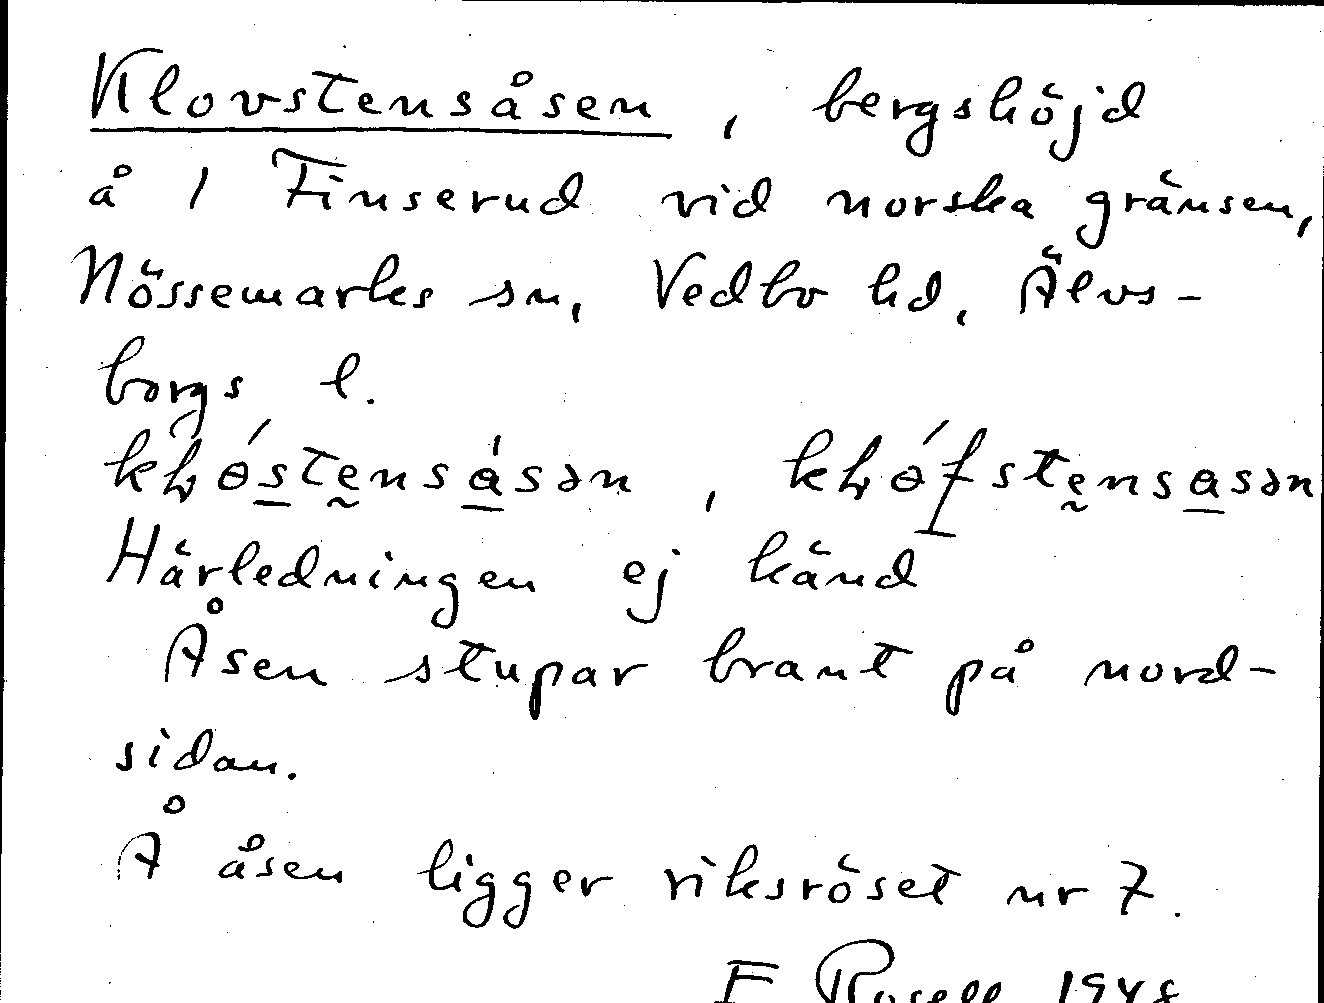 Klovstensåsen, bergshöjd
å 1 Finserud vid norska gränsen,
Nössemarks sn, Vedbo hd, Älvs-
borgs l.
Härledningen ej känd
Åsen stupar brant på nord-
sidan.
Å åsen ligger riksröset nr 7.
E Rosell 1948